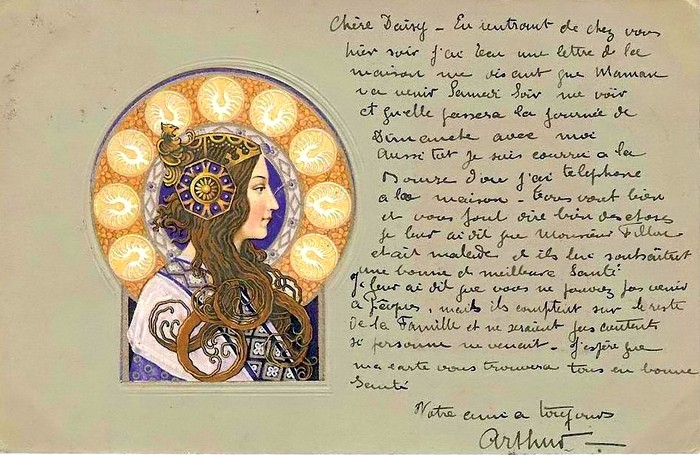 Chère Daisy – En rentrant de chez vous
hier soir j'ai eu une lettre de la
maison me disant que Maman
va venir Samedi Soir me voir
et qu'elle passera la journée de
Dimanche avec moi
aussitot je suis courru a la
Bourse d'ou j'ai telephone
a la maison – tous vont bien
et vous font dire bien des choses
je leur ai dit que Monsieur
etait malade et ils lui souhaitent
une bonne et meilleure Santé
Je leur ai dit que vous ne pouvez pas venir
a Pâques, mais ils comptent sur le reste
de la Famille et ne seraient pas contents
si personne ne venait – J'espère que
ma carte vous trouvera tous en bonne
Santé
Votre ami a toujours
Arthur